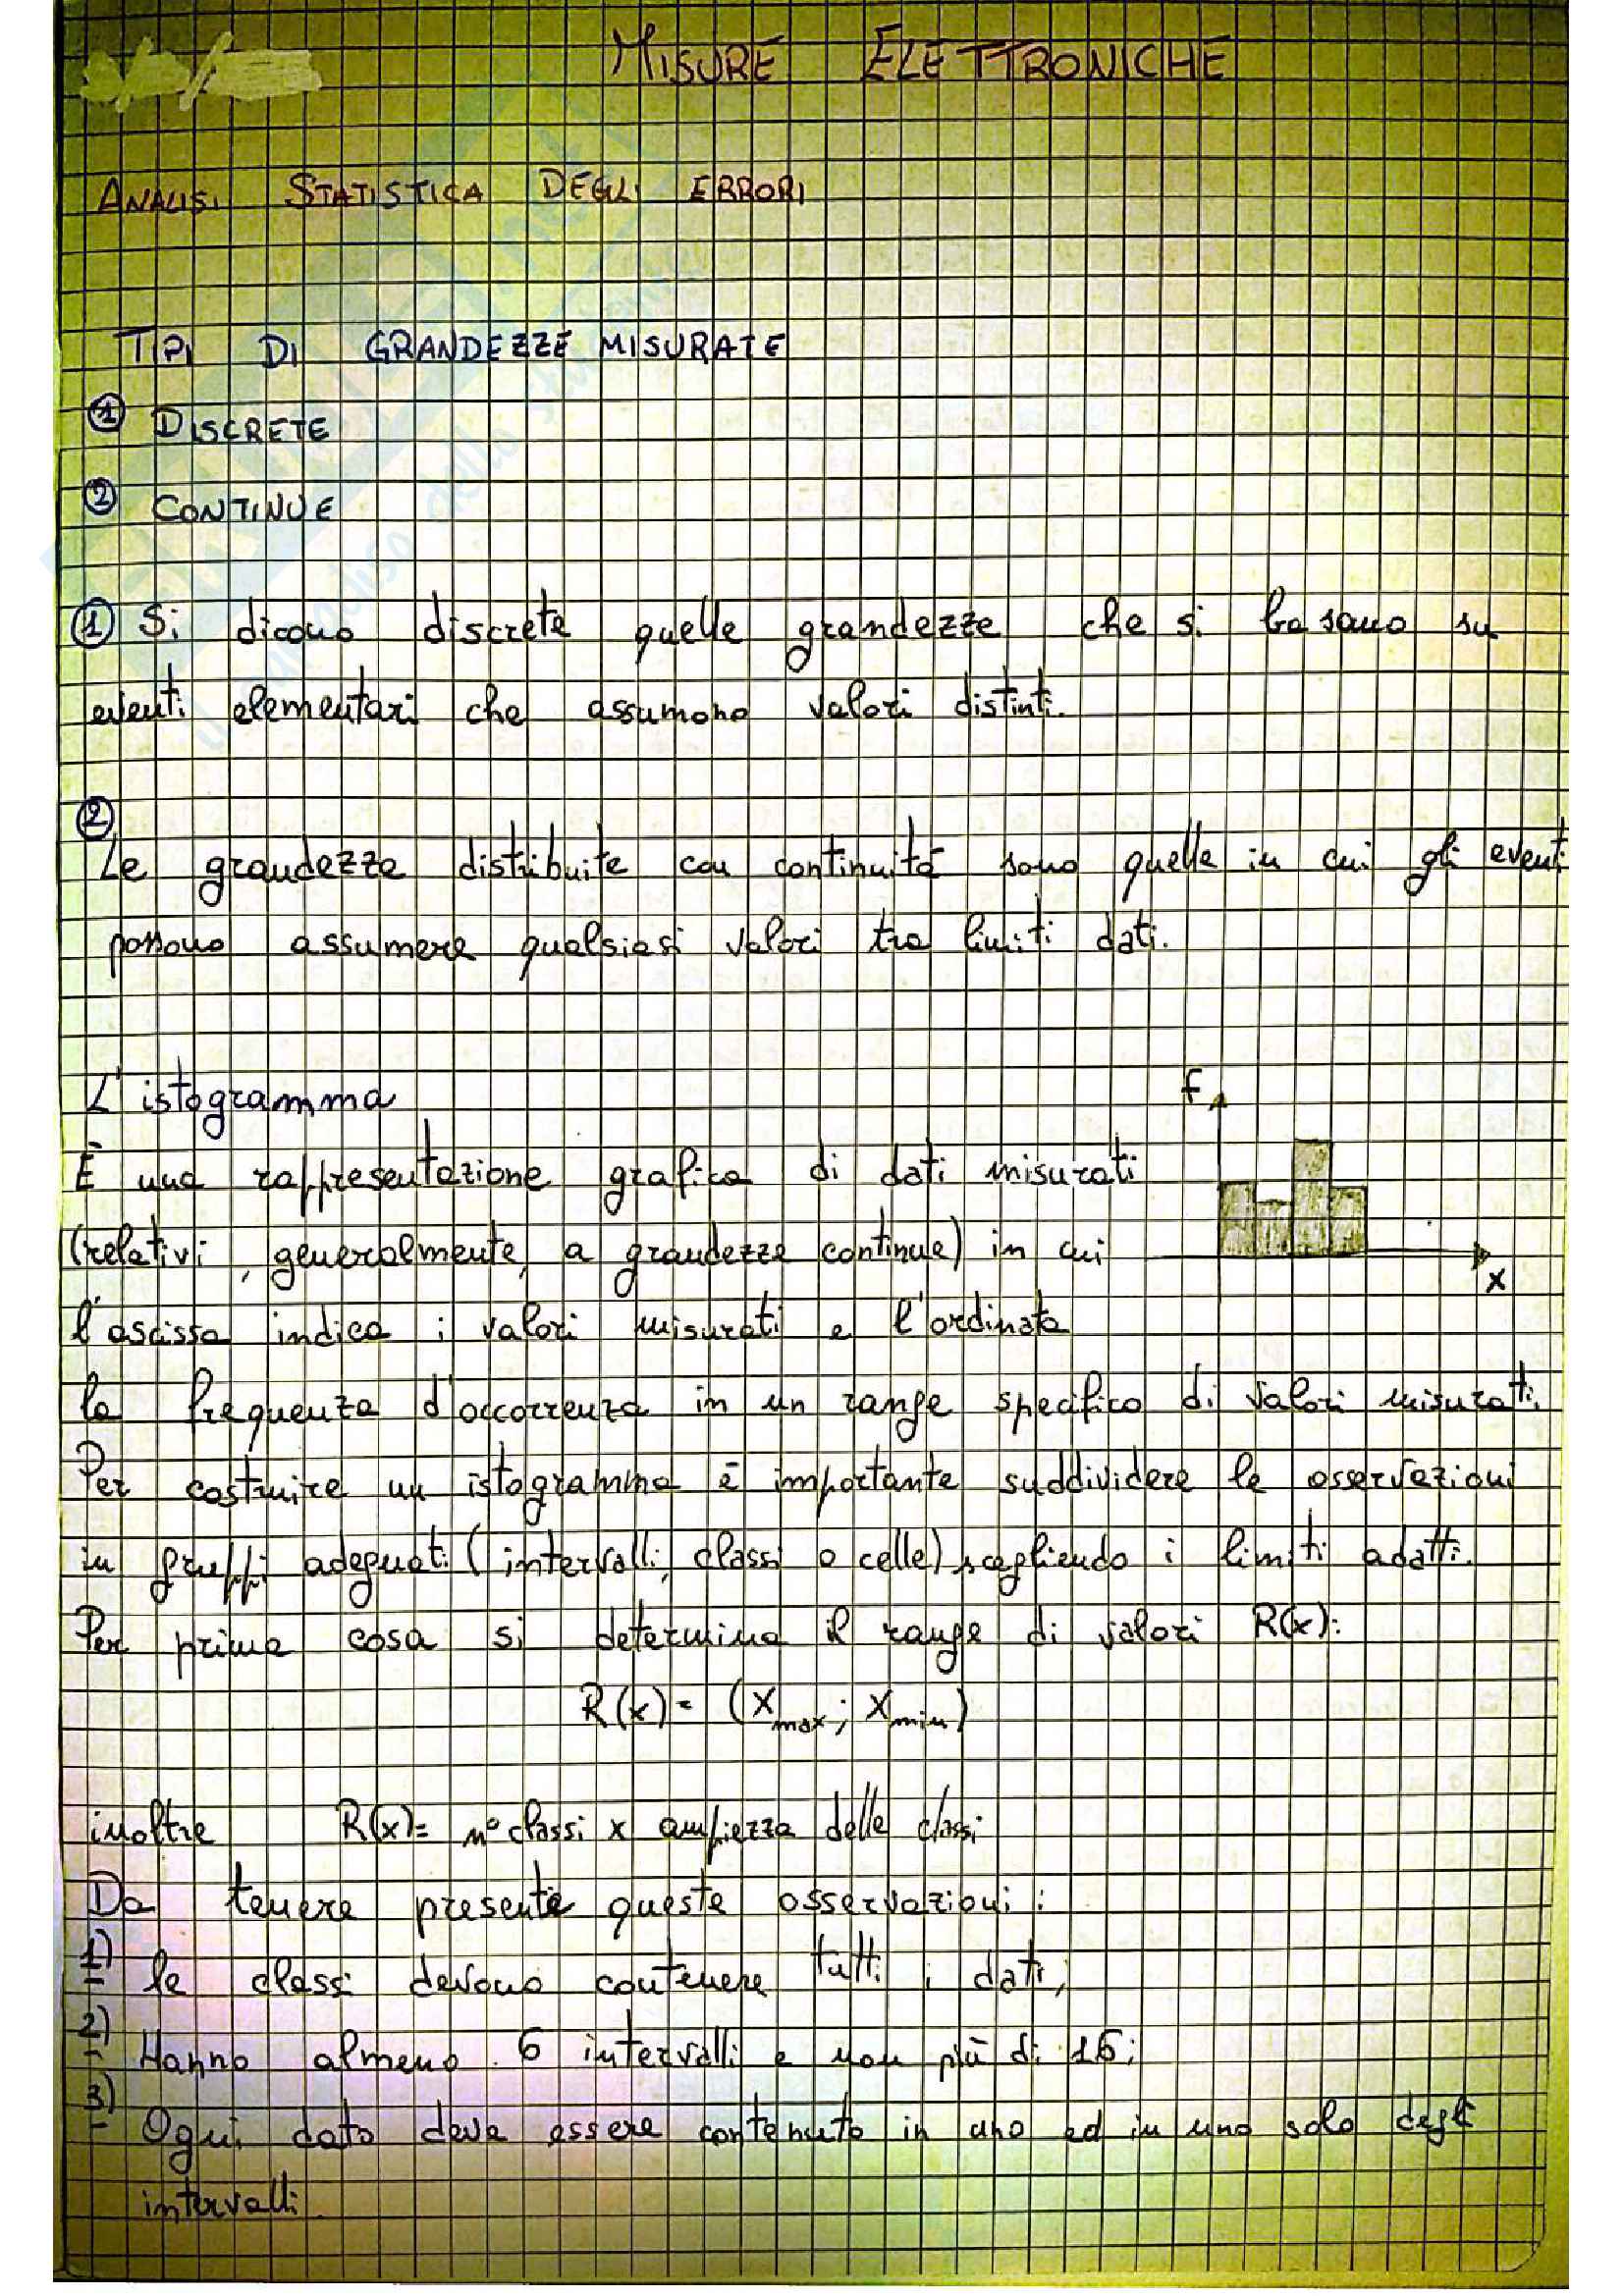 MISURE ELETTRONICHE
ANALISI STATISTICA DEGLI ERRORI
TIPI DI GRANDEZZE MISURATE
① DISCRETE
② CONTINUE
① Si dicono discrete quelle grandezze che si basano su
eventi elementari che assumono valori distinti.
②
Le grandezze distribuite con continuità sono quelle in cui gli eventi
possono assumere qualsiasi valori tra limiti dati.
L'istogramma
F
È una rappresentazione grafica di dati misurati
(relativi, generalmente, a grandezze continue) in cui
x
l'ascissa indica i valori misurati e l'ordinata
la frequenza d'occorrenza in un range specifico di valori misurati.
Per costruire un istogramma è importante suddividere le osservazioni
in gruppi adeguati (intervalli, classi o celle) scegliendo i limiti adatti.
Per prima cosa si determina il range di valori R(x):
R(x) = (x max ; x min)
inoltre R(x)= n° classi x ampiezza delle classi
Da tenere presente queste osservazioni:
1) le classi devono contenere tutti i dati;
2) Hanno almeno 6 intervalli e non più di 16;
3) Ogni dato deve essere contenuto in uno ed in uno solo degli
intervalli.